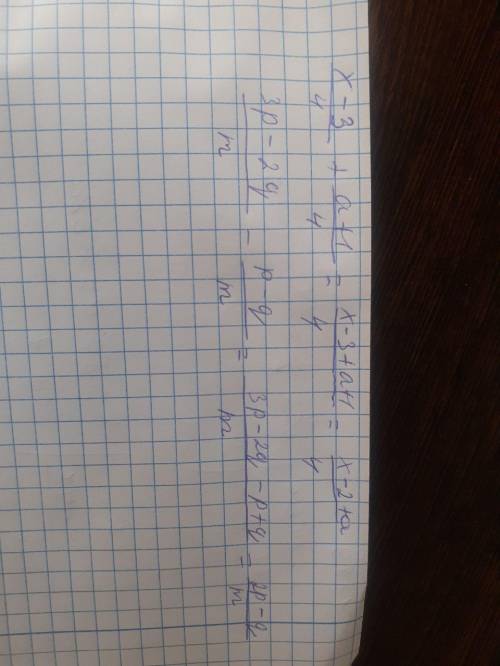 (x-3)/4 + (a+1)/4 = (x-3+a+1)/4 = (x-2+a)/4
(3p-2q)/m - (p-q)/m = (3p-2q-p+q)/m = (2p-q)/m